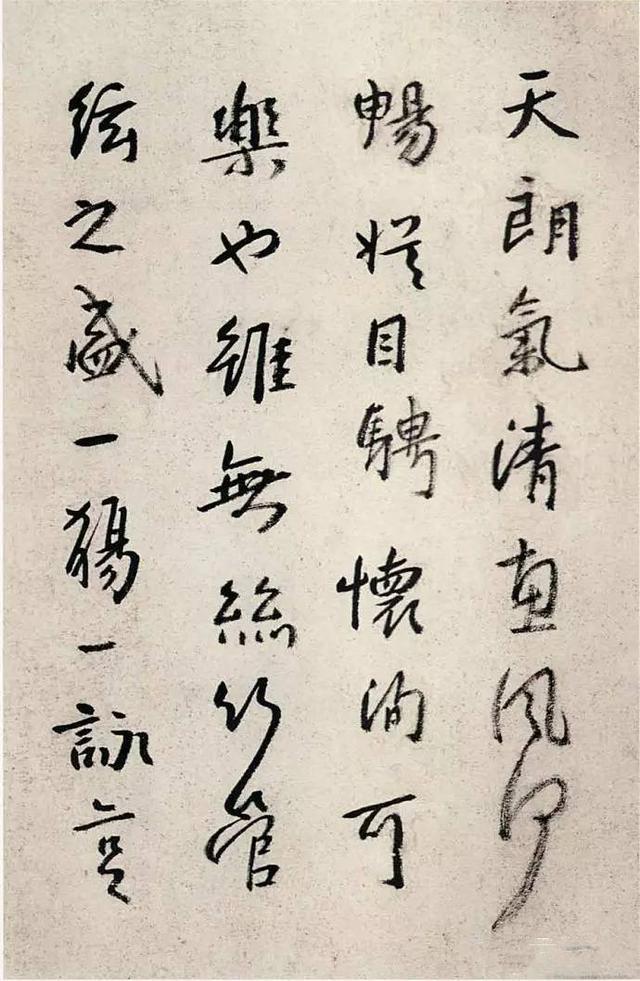 天朗氣清惠風和
暢娛目騁懷洵可
樂也雖無絲竹管
絃之盛一觴一詠